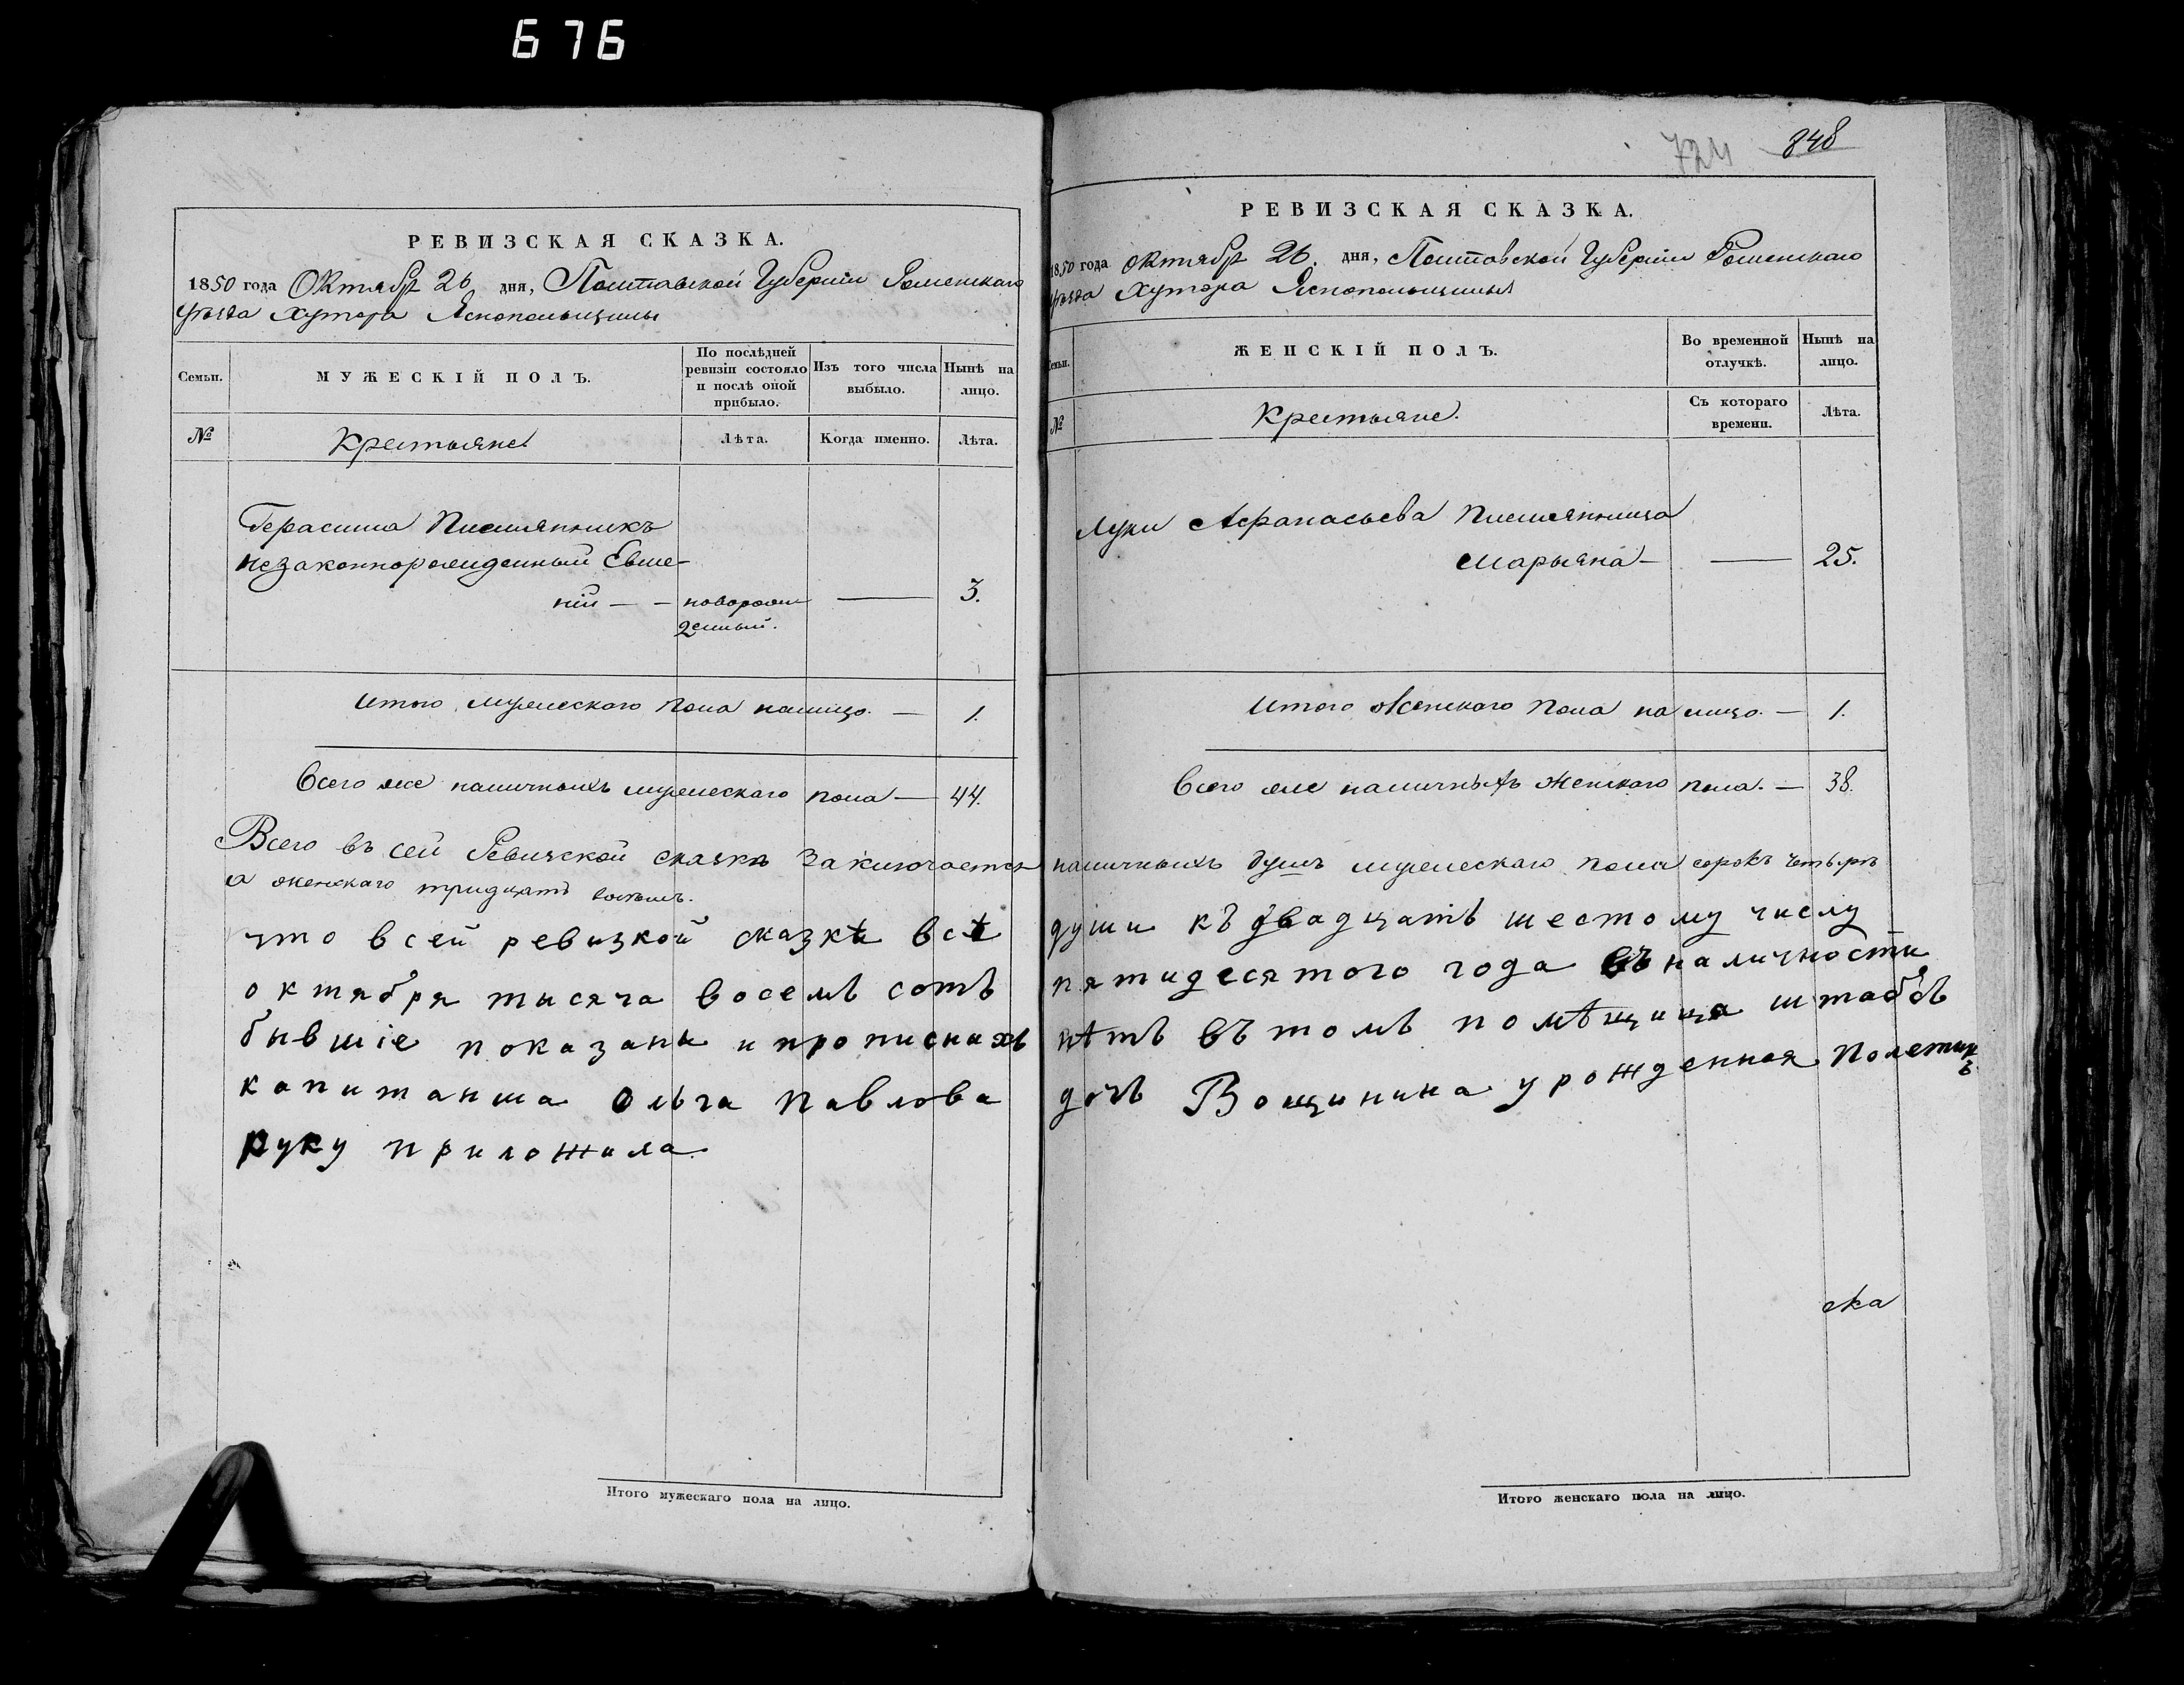 676
РЕВИЗСКАЯ СКАЗКА.
1850 года Октября 26 дня, Полтавской Губерніи Роменскаго
Уѣзда Хутора Яснопольщины
Семьи.
МУЖЕСКІЙ ПОЛЪ.
По послѣдней ревизіи состояло и послѣ оной прибыло.
Изъ того числа выбыло.
Нынѣ на лицо.
№
Крестьяне
Лѣта.
Когда именно.
Лѣта.
Герасима Племянникъ
незаконнорожденный Евме-
ній — — новорож
денный. — 3.
Итого мужескаго пола налицо. — 1.
Всего же наличныхъ мужескаго пола — 44.
Всего въ сей Ревизской сказкѣ заключается
а женскаго тридцать восемь.
что в сей ревизкой сказкѣ всѣ
октября тисяча восемь сотъ
бывшіе показаны и прописныхъ
капитанша Ольга Павлова
руку приложила
Итого мужескаго пола на лицо.
724 348
РЕВИЗСКАЯ СКАЗКА.
1850 года Октября 26. дня, Полтавской Губерніи Роменскаго
Уѣзда Хутора Яснопольщины
Семьи.
ЖЕНСКІЙ ПОЛЪ.
Во временной отлучкѣ.
Нынѣ на лицо.
№
Крестьяне.
Съ котораго времени.
Лѣта.
Луки Афанасьева племянница
Марьяна — — 25.
Итого Женскаго пола на лицо. — 1.
Всего же наличныхъ Женскаго пола. — 38.
наличныхъ душъ мужескаго пола сорокъ четыре
души къ двадцатъ шестому числу
пятидесятого года въ наличности
нѣтъ въ томъ помѣщица штабсъ
дочъ Вощинина урожденная Полетик
ъ
ска
Итого женскаго пола на лицо.